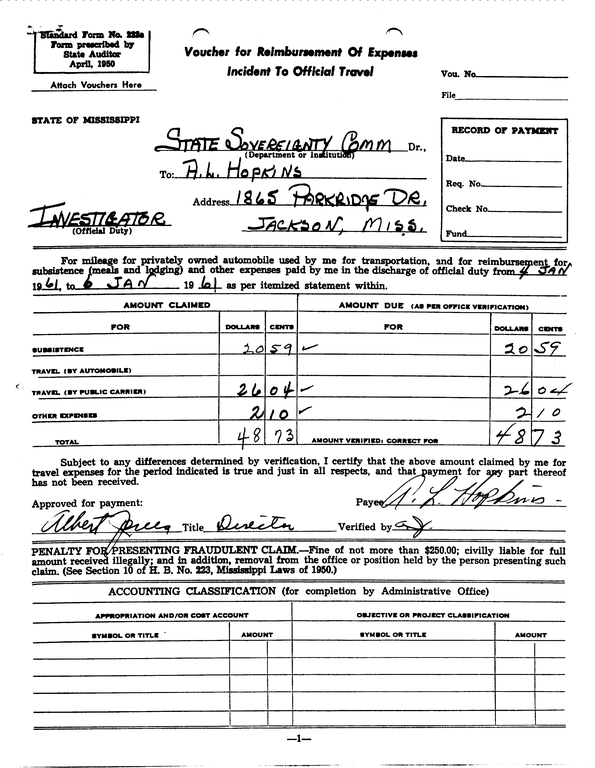 Standard Form No. 223a
Form prescribed by
State Auditor
April, 1950
Attach Vouchers Here
Voucher for Reimbursement Of Expenses
Incident To Official Travel
Vou. No.
File
STATE OF MISSISSIPPI
RECORD OF PAYMENT
Date
Req. No.
Check No.
Fund
STATE SOVEREIGNTY COMM Dr.,
(Department or Institution)
To: A.L. HOPKINS
Address 1865 PARKRIDGE DR.
INVESTIGATOR JACKSON, MISS.
(Official Duty)
For mileage for privately owned automobile used by me for transportation, and for reimbursement for
subsistence (meals and lodging) and other expenses paid by me in the discharge of official duty from 4 JAN
1961, to 6 JAN 1961 as per itemized statement within.
AMOUNT CLAIMED AMOUNT DUE (AS PER OFFICE VERIFICATION)
FOR DOLLARS CENTS FOR DOLLARS CENTS
SUBSISTENCE 20 59 ✓ 20 59
TRAVEL (BY AUTOMOBILE)
TRAVEL (BY PUBLIC CARRIER) 26 04 ✓ 26 04
OTHER EXPENSES 2 10 ✓ 2 10
TOTAL 48 73 AMOUNT VERIFIED: CORRECT FOR 48 73
Subject to any differences determined by verification, I certify that the above amount claimed by me for
travel expenses for the period indicated is true and just in all respects, and that payment for any part thereof
has not been received.
Approved for payment: Payee A. L. Hopkins -
Albert Jones Title Director Verified by
PENALTY FOR PRESENTING FRAUDULENT CLAIM.—Fine of not more than $250.00; civilly liable for full
amount received illegally; and in addition, removal from the office or position held by the person presenting such
claim. (See Section 10 of H. B. No. 223, Mississippi Laws of 1950.)
ACCOUNTING CLASSIFICATION (for completion by Administrative Office)
APPROPRIATION AND/OR COST ACCOUNT OBJECTIVE OR PROJECT CLASSIFICATION
SYMBOL OR TITLE AMOUNT SYMBOL OR TITLE AMOUNT
—1—